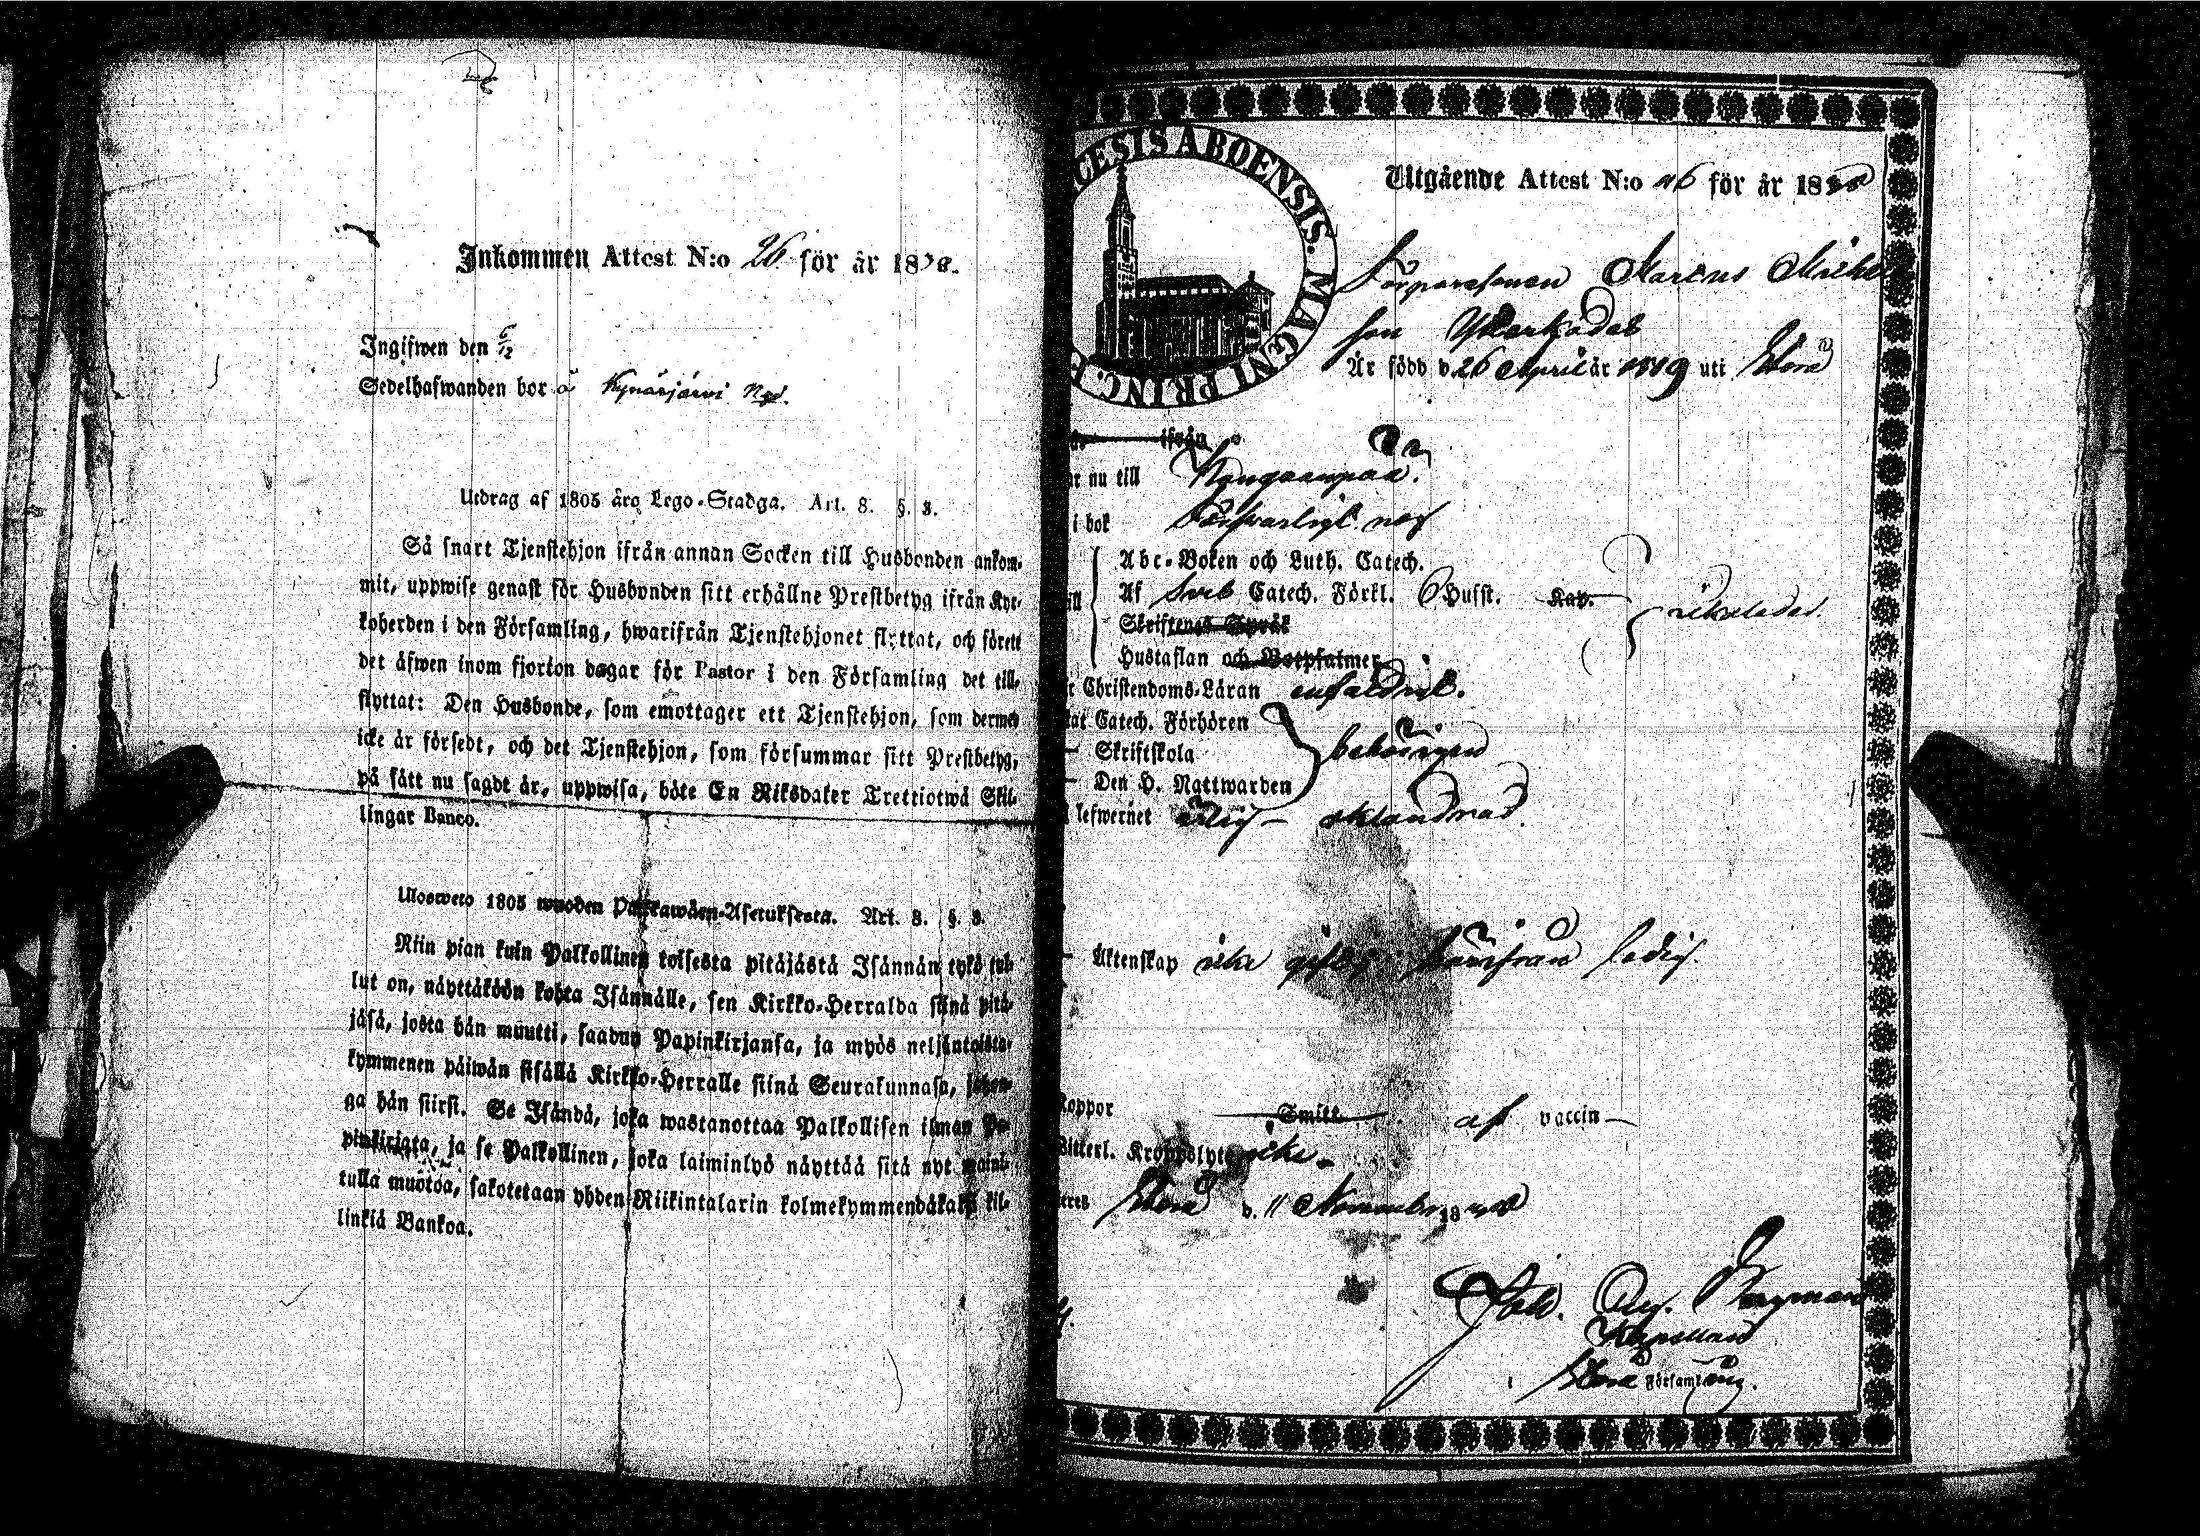 Inkommen Attest N:o 26. för år 1838.
Ingifwen den 6/12
Sedelhafwanden bor å Kynäsjärvi
Utdrag af 1805 års Lego-Stadga. Art. 8. §. 3.
Så snart Tjenstehjon ifrån annan Socken till Husbonden ankom-
mit, uppwise genast för Husbonden sitt erhållne Prestbetyg ifrån Kyr-
koherden i den Församling, hwarifrån Tjenstehjonet flyttat, och förete
det äfwen inom fjorton dagar för Pastor i den Församling det till-
flyttat: Den Husbonde, som emottager ett Tjenstehjon, som dermed
icke är försedt, och det Tjenstehjon, som försummar sitt Prestbetyg,
på sätt nu sagdt är, uppwisa, böte En Riksdaler Trettiotwå Skil-
lingar Banco.
Ulosweto 1805 wuoden Palkawäen-Asetuksesta. Art. 8. §. 3.
Niin pian kuin Palkollinen toisesta pitäjästä Isännän tykö tul-
lut on, näyttäköön kohta Isännälle, sen Kirkko-Herralda siinä pitä-
jäsä, josta hän muutti, saadun Papinkirjansa, ja myös neljäntoista-
kymmenen päiwän sisällä Kirkko-Herralle siinä Seurakunnasa, johon-
ga hän siirsi. Se Isändä, joka wastanottaa Palkollisen ilman Pa-
pinkirjata, ja se Palkollinen, joka laiminlyö näyttää sitä nyt maini-
tulla muotoa, sakotetaan yhden Riikintalarin kolmekymmendäkaksi kil-
linkiä Bankoa.
CESIS ABOENSIS. MAGNI PRINC. F
Utgående Attest N:o 46 för år 18
Marcus Mickels
son
Är född d. 26 April år 1819 uti
ifrån
nu till Kangaanpää.
i bok
Abc-Boken och Luth. Catech.
Af Sveb Catech. Förkl. 6 Hufst. Kap.
Skriftenes Språk
Hustaflan och Botpsalmer
Christendoms-Läran enfaldigt.
Catech. Förhören
Skriftskola behörigen
Den H. Nattwarden
lefwernet ärlig oklandrad.
Äktenskap icke härifrån ledig.
Koppor Smitt af vaccin
Bitterl. Kroppslyte icke
d. 11 November 18
Joh. Aug. Bergman
Kapellan
Församling.